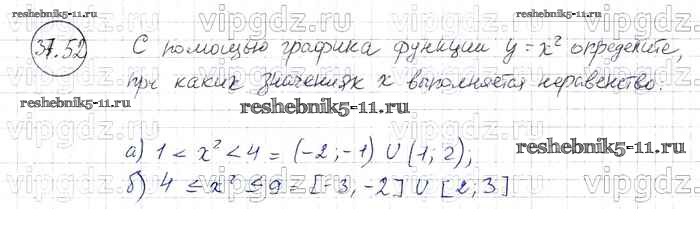 37.52 С помощью графика функции y = x² определите,
при каких значениях x выполняется неравенство:
а) 1 < x² < 4 = (-2; -1) ∪ (1; 2);
б) 4 ≤ x² ≤ 9 = [-3, -2] ∪ [2; 3]
reshebnik5-11.ru
reshebnik5-11.ru
reshebnik5-11.ru
reshebnik5-11.ru
reshebnik5-11.ru
vipgdz.ru
vipgdz.ru
vipgdz.ru
vipgdz.ru